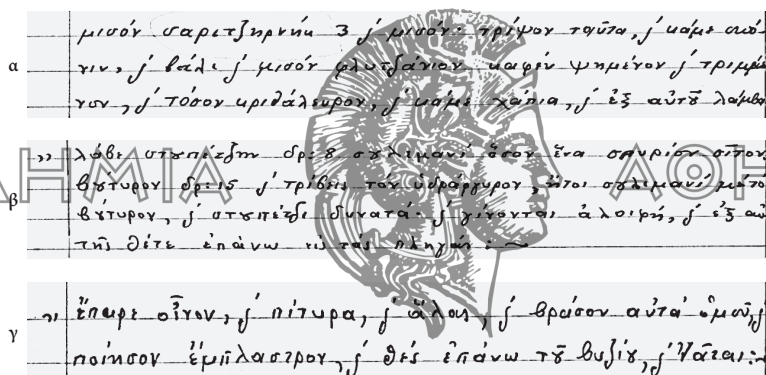 μισόν σαρετζηρνήκ 3 ϳ μισόν· τρίψον ταῦτα, ϳ κάμε σκό-
α γιν, ϳ βάλε ϳ μισόν φλυτζάνιον καφέν ψημένον ϳ τριμμέ
νον, ϳ τόσον κριθάλευρον, ϳ κάμε χάπια, ϳ ἐξ αὐτοῦ λάμβα
ΔΗΜΙΑ ΑΘΗ
" λάβε στυπέτζην δρ: 8 συλιμανί ὅσον ἕνα σπυρίον σῖτον
β βȣ́τυρον δρ: 15 ϳ τρίβεις τὸν ὑδράργυρον, ἤτοι συλιμανί μὲ τὸ
βȣ́τυρον, ϳ στυπέτζι δυνατά· ϳ γίνονται ἀλοιφή, ϳ ἐξ αὐ
τῆς θέτε ἐπάνω εἰς τὰς πληγάς: ~
γ " ἔπαρε οἶνον, ϳ πίτυρα, ϳ ἅλας, ϳ βράσον αὐτὰ ὁμοῦ, ϳ
ποίησον ἔμπλαστρον, ϳ θὲς ἐπάνω τȣ͂ βυζίȣ, ϳ ἰᾶται: ~